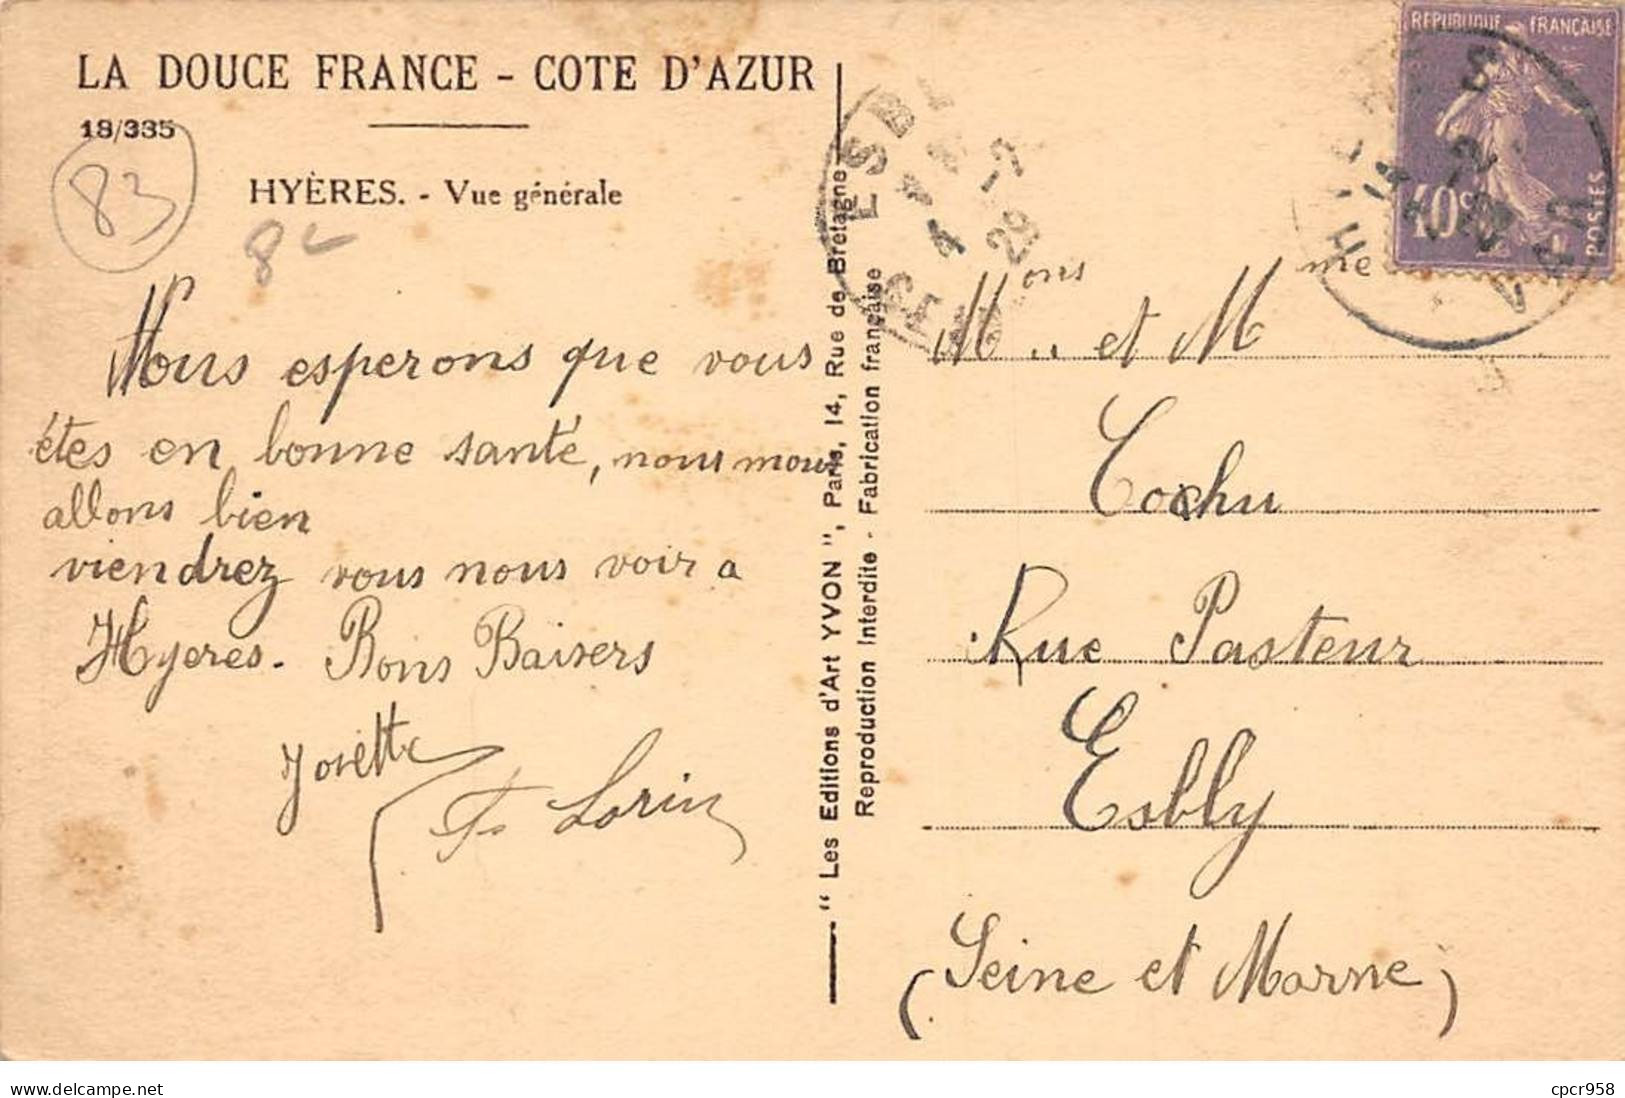 LA DOUCE FRANCE - COTE D'AZUR
18/335
83
HYÈRES. - Vue générale
8
Nous esperons que vous
êtes en bonne santé, nous nous
allons bien
viendrez vous nous voir a
Hyeres. Bons Baisers
Josette
Lorin
“ Les Editions d'Art YVON ”, Paris, 14, Rue de Bretagne
Reproduction Interdite - Fabrication française
ESBLY
4 -2
29
SEINE
REPUBLIQUE FRANÇAISE
40c
POSTES
HYERES
VAR
Mons .. et Mme
Cochu
Rue Pasteur
Esbly
(Seine et Marne)
cpcr958